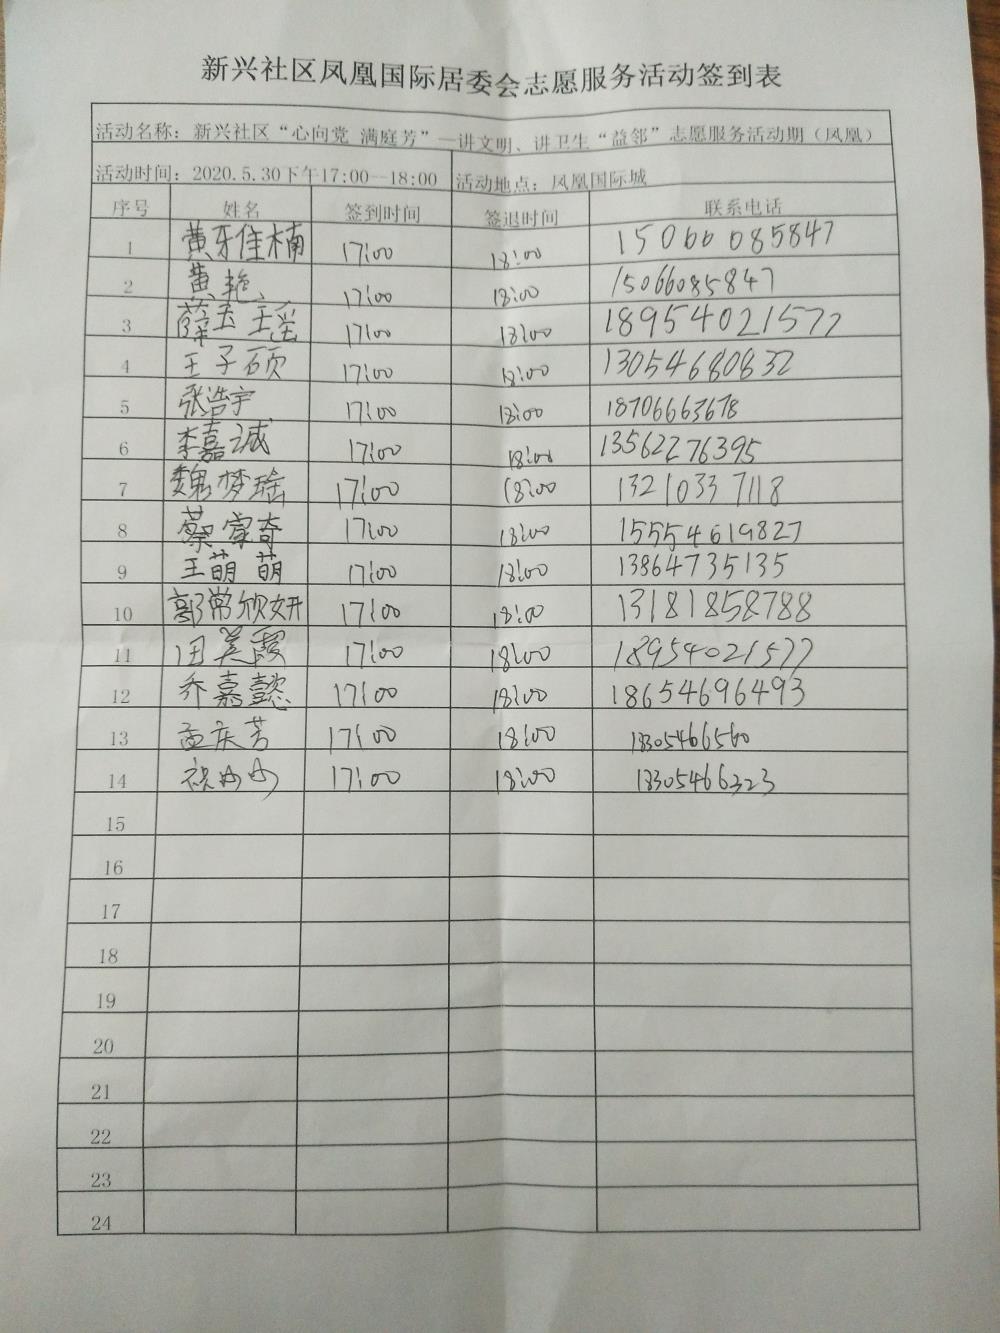 新兴社区凤凰国际居委会志愿服务活动签到表
活动名称：新兴社区“心向党 满庭芳”—讲文明、讲卫生“益邻”志愿服务活动期（凤凰）
活动时间：2020.5.30下午17:00--18:00 活动地点：凤凰国际城
序号 姓名 签到时间 签退时间 联系电话
1 黄牙佳楠 17:00 18:00 15066085847
2 黄艳 17:00 18:00 15066085847
3 薛玉瑶 17:00 18:00 18954021577
4 王子硕 17:00 18:00 13054680832
5 张浩宇 17:00 18:00 18706663678
6 李嘉诚 17:00 18:00 13562276395
7 魏梦瑶 17:00 18:00 13210337118
8 17:00 18:00 15554619827
9 王萌萌 17:00 18:00 13864735135
10 郭常欣妍 17:00 18:00 13181858788
11 田美霞 17:00 18:00 18954021577
12 乔嘉懿 17:00 18:00 18654696493
13 孟庆芳 17:00 18:00 18305466560
14 17:00 18:00 18305466323
15
16
17
18
19
20
21
22
23
24